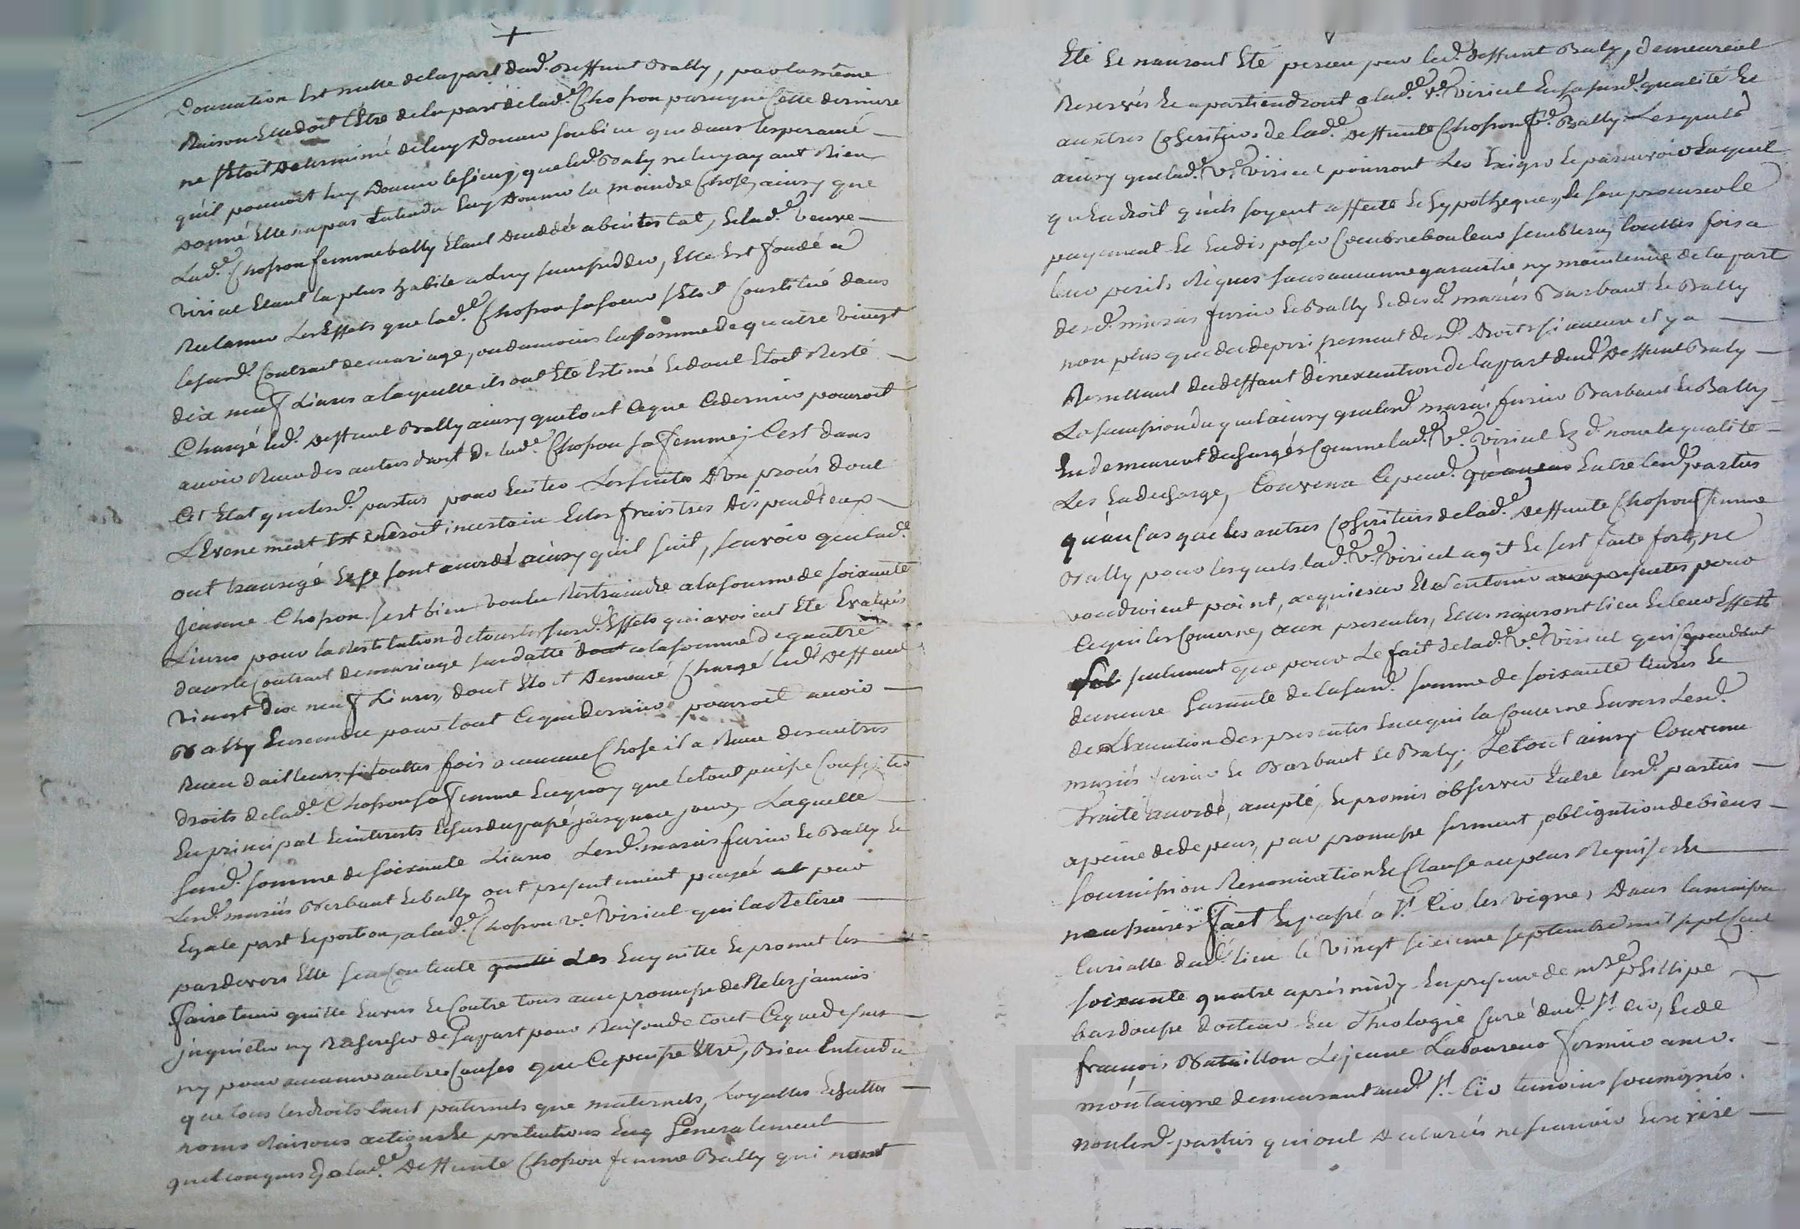 Donnation est nulle de la part dud. deffunt Bally, par la même
Raison elle doit l'être de la part de lad.e Chopon parceque cette derniere
ne s'étoit determiné de luy donner son bien que dans l'esperance
qu'il pouvoit luy donner le sien, que led. Bally ne luy ayant Rien
donné elle n'a pas entendu luy donner la moindre chose, ainsy que
Lad.e Chopon femme Bally etant decedée abintestat, et lad.e veuve
Virieul etant la plus habile a luy succeder, elle est fondé a
Reclamer Les Effets que lad.e Chopon sa soeur s'étoit Constitué dans
le sud. Contrat de mariage, ou du moins la somme de quatre vingt
dix neuf Livres a laquelle ils ont été Estimé et dont étoit Resté
Chargé led. deffunt Bally ainsy que tout ce que ce dernier pouvoit
avoir Reçu des autres droit de lad.e Chopon sa femme; C'est dans
Cet Etat que lesd. partus pour Eviter Les suites d'un procès dont
L'Evenement est seroit incertain et les frais tres dispendieux
ont transigé et se sont accordé ainsy qu'il suit, sçavoir que lad.
Jeanne Chopon s'est bien voulu Restraindre a la somme de soixante
Livres pour la Restitution de tous les susd. Effets qui avoient été Evalués
dans le Contrat de mariage susdatté a la somme de quatre
vingt dix neuf Livres, dont étoit demeuré Chargé led. deffunt
Bally Ensemble pour tout ce que dernier pouvoit avoir
Reçu d'ailleurs si touttes fois aucune Chose il a Reçu des autres
droits de lad.e Chopon sa femme En quoy que le tout puisse Consister
En principal et interests Echus du passé jusqu'a ce jour, Laquelle
susd. somme de soixante Livres Lesd. mariés furier et Bally et
Lesd. mariés Barbaut et Bally ont presentement payé par
Egale part et portion, a lad.e Chopon v.e Virieul qui l'a Retiré
pardevers Elle s'en Contente Les En quitte et promet les
faire tenir quitte Envers et Contre tous avec promesse de ne les jamais
inquieter ny Rechercher de sa part pour Raison de tout Ce que dessus
ny pour aucunes autres Causes que Ce puisse Etre, Bien Entendu
que tous les droits tant paternels que maternels, Loyaltes Echuttes
noms Raisons actions et pretentions Et Generalement
quelconques a lad.e deffunte Chopon femme Bally qui n'ont
Eté Et n'auront Eté perceu par led. deffunt Baly, demeurent
Reservés Et apartiendront a lad.e v.e Virieul En sa sud. qualité Et
aux autres Coheritiers de lad.e deffunte Chopon f.e Bally Lesquels
ainsy que lad.e V.e Virieul pourront Les Exiger Et percevoir Lequel
qu'endroit qu'ils soyent affecté Et hypotheques, s'en procurer le
payement Et En disposer Comme bon leur semblera, touttes fois a
leur perils Risques sans aucune garantie ny maintenue de la part
desd. mariés furier et Bally Et desd. mariés Barbaut et Bally
non plus que de deperissement desd. droits si aucun il y a
Resultant du deffaut d'execution de la part dud. deffunt Bally
La succession duquel ainsy que lesd. mariés furier Barbaut Et Bally
En demeurent dechargés Comme lad.e V.e Virieul Esd. nom et qualité
Les En decharge, Convenu Cepend. Entre lesd. parties
qu'au Cas que les autres Coheritiers de lad.e deffunte Chopon femme
Bally pour lesquels lad.e V.e Virieul agit Et s'est faite fort, ne
voudroient point, acquiescer Et s'en tenir aux presentes pour
Ce qui les Concerne, aux presentes, Elles n'auront lieu Et leur Effets
seulement que pour Le fait de lad.e V.e Virieul qui Cependant
demeure Garante de la susd. somme de soixante Livres Et
de L'Execution des presentes En ce qui la Concerne Envers Lesd.
mariés furier Et Barbaut Et Baly; Le tout ainsy Convenu
traité accordé, accepté, Et promis observer Entre lesd. parties
a peine de depens, par promesse serment, obligation de biens
soumission Renonciation Et Clause au plus Requise Et
necessaires Fait Et passé a S.t Cir les vigne, Dans la maison
Curialle dud. lieu le vingt sixieme septembre mil sept Cent
soixante quatre après midy En presence de m.re phillipe
docteur En Theologie Curé dud. S.t Cir, Et de
françois Bataillon Lejeune Laboureur
montaigne demeurant aud. S.t Cir temoins soussignés.
non lesd. parties qui ont declarés ne sçavoir Ecrire